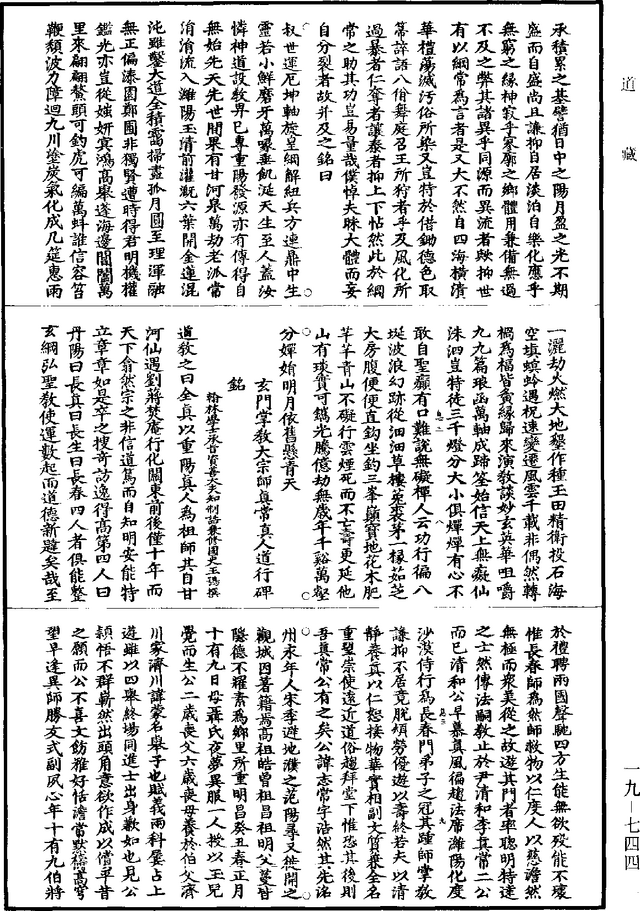 道藏
承積累之基譬猶日中之陽月盈之光不期
盛而自盛尚且謙抑自居淡泊自樂化應乎
無窮之緣神寂乎寥廓之鄉體用兼備無過
不及之弊其諸異乎同源而異流者歟抑世
有以綱常為言者是又大不然自四海橫潰
華禮蕩緘汚俗所染又豈特於借鋤德色取
箒誶語八佾舞庭召王所狩者乎及風化所
過暴者仁奪者讓泰者抑上下怗然此於綱
常之助其功豈易量哉僕悼夫昧大體而妄
自分裂者故并及之銘曰
叔世運厄坤軸旋皇綱解紐兵方連鼎中生
靈若小鮮磨牙萬喙垂飢涎天生至人蓋汝
憐神道設教畀已專重陽發源亦有傳得自
無始先天先世間果有甘河泉萬劫老派常
涓涓流入濰陽玉清前灌溉六葉開金蓮混
沌雖鑿大道全積靄掃盡孤月圓至理渾融
無正偏漆園鄭圃非獨賢遭時得君明機權
鑑光亦豈從媸妍冥鴻高舉蓬海邊閶闔萬
里來翩翩鰲頭可釣虎可編萬蚪誰信容笞
鞭頹波力障迴九川塗炭氣化成几筵惠雨
一灑劫火燃大地墾作種玉田精衛投石海
空填螟蛉遇祝速變遷風雲千載非偶然轉
禍為福皆夤緣歸來演教談妙玄英華咀嚼
九九篇琅函萬軸成蹄筌始信天上無癡仙
洙泗豈特徒三千燈分大小俱燀燀有心不
敢自聖癲有口難説無礙禪人云功行徧八
埏波浪幻跡從沺沺草樓菟裘茅一椽茹芝
大房腹便便直鈎坐釣三峯巔寶地花木肥
芊芊青山不礙行雲煙死而不亡壽更延他
山有琰實可鐫光騰億劫無歲年千谿萬壑
分嬋娟明月依舊懸青天
玄門掌教大宗師真常真人道行碑
銘
翰林學士承旨資善大夫知制誥兼修國史王鶚撰
道教之曰全真以重陽真人為祖師其自甘
河仙遇劉蔣焚庵行化關東前後僅十年而
天下翕然宗之非信道篤而自知明安能特
立章章如是卒之搜奇訪逸得高第四人曰
丹陽曰長真曰長生曰長春四人者俱能整
玄綱弘聖教使運數起而道德新韙矣哉至
於禮聘兩國聲馳四方生能無欲歿能不壞
惟長春師為然師救物以仁度人以慈澹然
無極而衆美從之故遊其門者率聰明特達
之士然傳法嗣教止於尹清和李真常二公
而已清和公早慕真風徧趨法席濰陽化度
沙漠侍行為長春門弟子之冠其踵師掌教
謙抑不居竟脫煩勞優遊以壽終若夫以清
靜養真以仁恕接物華實相副文質兼全名
重望崇使遠近道俗趨拜堂下惟恐其後則
吾真常公有之矣公諱志常字浩然其先洺
州永年人宋季避地濮之范陽尋又徙開之
觀城因著籍焉高祖皓曾祖昌祖明父蔓皆
隱德不耀素為鄉里所重明昌癸丑春正月
十有九日母聶氏夜夢異服一人授以玉兒
覺而生公二歲喪父六歲喪母養於伯父濟
川家濟川諱蒙名舉子也賦義兩科屢占上
遊雖以四舉終場同進士出身歉如也見公
穎悟不群嶄然出頭角意欲作成以償平昔
之願而公不喜文飾雅好恬澹當默禱蒿穹
望早逢異師勝友式副夙心年十有九伯將
一九—七四四